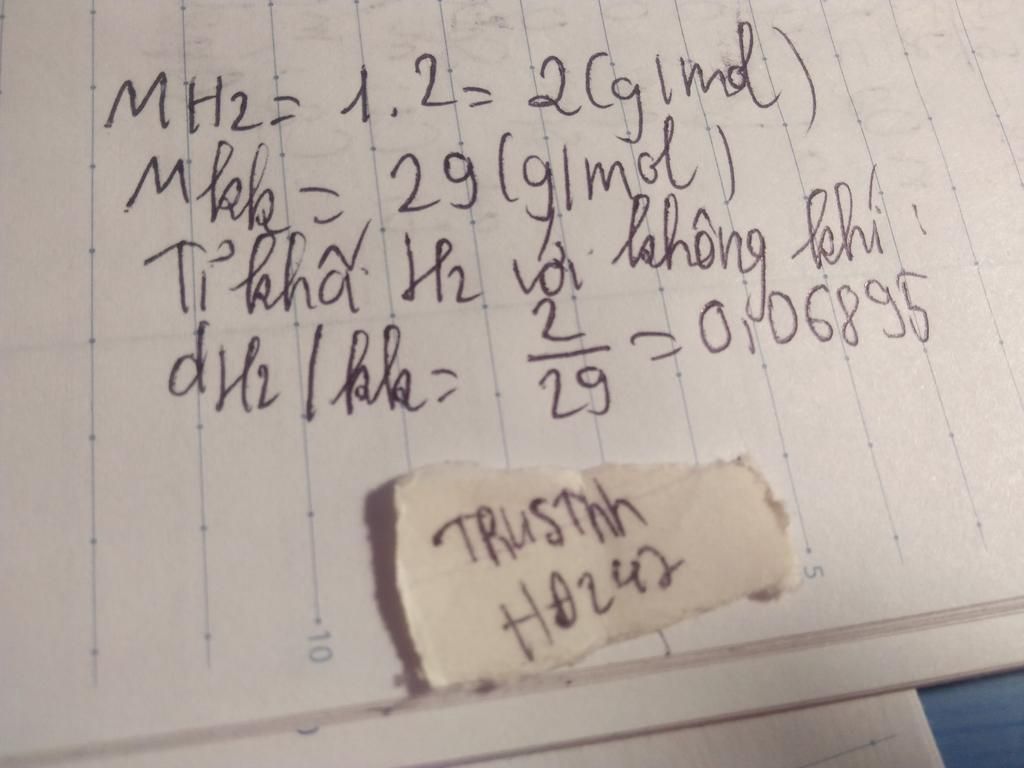 MH2 = 1.2 = 2(g/mol)
Mkk = 29(g/mol)
Tỉ khối H2 với không khí:
dH2/kk = 2/29 = 0,06895
TRUSTnh
HĐ247
10
5